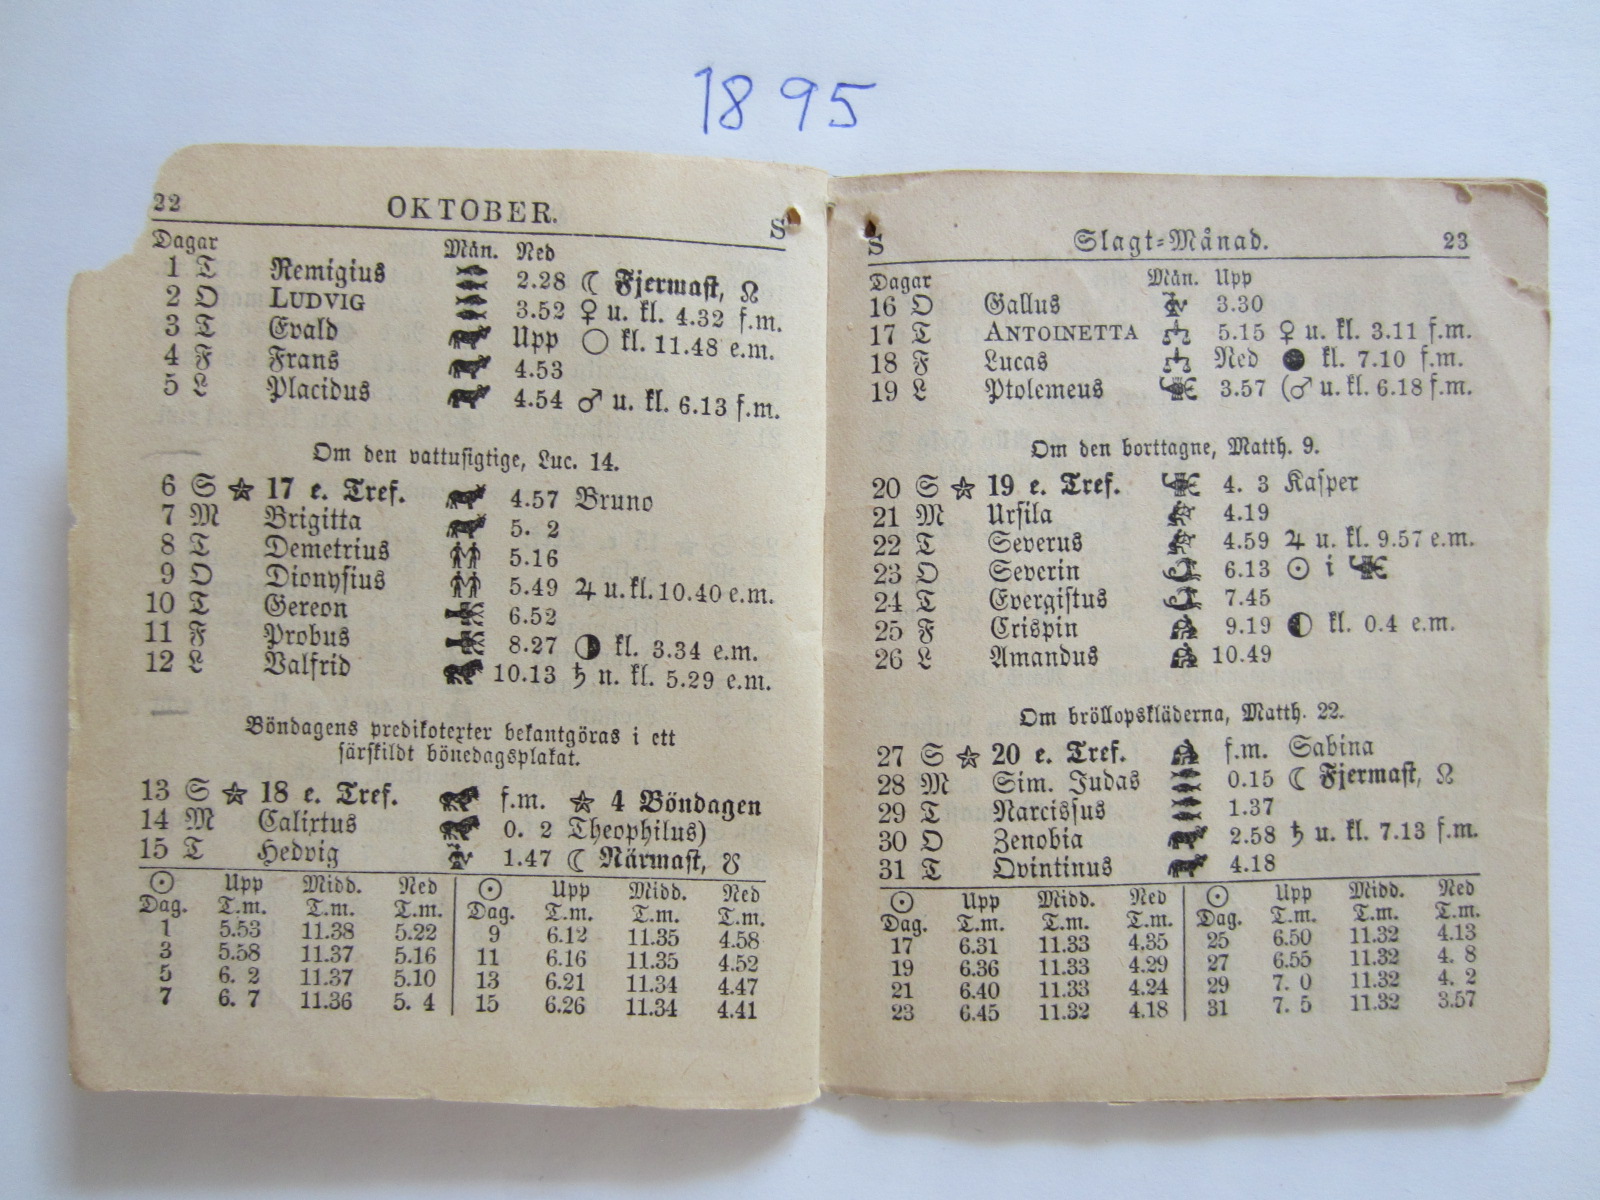 1895
22 OKTOBER. S
Dagar Mån. Ned
1 T Remigius 2.28 ☾ Fjermast, ☊
2 O LUDVIG 3.52 ♀ u. kl. 4.32 f.m.
3 T Evald Upp ○ kl. 11.48 e.m.
4 F Frans 4.53
5 L Placidus 4.54 ♂ u. kl. 6.13 f.m.
Om den vattusigtige, Luc. 14.
6 S ☆ 17 e. Tref. 4.57 Bruno
7 M Brigitta 5. 2
8 T Demetrius 5.16
9 O Dionysius 5.49 ♃ u. kl. 10.40 e.m.
10 T Gereon 6.52
11 F Probus 8.27 ◑ kl. 3.34 e.m.
12 L Valfrid 10.13 ♄ n. kl. 5.29 e.m.
Böndagens predikotexter bekantgöras i ett
särskildt bönedagsplakat.
13 S ☆ 18 e. Tref. f.m. ☆ 4 Böndagen
14 M Calixtus 0. 2 Theophilus)
15 T Hedvig 1.47 ☾ Närmast, ☋
☉ Upp Midd. Ned ☉ Upp Midd. Ned
Dag. T.m. T.m. T.m. Dag. T.m. T.m. T.m.
1 5.53 11.38 5.22 9 6.12 11.35 4.58
3 5.58 11.37 5.16 11 6.16 11.35 4.52
5 6. 2 11.37 5.10 13 6.21 11.34 4.47
7 6. 7 11.36 5. 4 15 6.26 11.34 4.41
S Slagt-Månad. 23
Dagar Mån. Upp
16 O Gallus 3.30
17 T ANTOINETTA 5.15 ♀ u. kl. 3.11 f.m.
18 F Lucas Ned ● kl. 7.10 f.m.
19 L Ptolemeus 3.57 (♂ u. kl. 6.18 f.m.
Om den borttagne, Matth. 9.
20 S ☆ 19 e. Tref. 4. 3 Kasper
21 M Ursila 4.19
22 T Severus 4.59 ♃ u. kl. 9.57 e.m.
23 O Severin 6.13 ☉ i ♏
24 T Evergistus 7.45
25 F Crispin 9.19 ◐ kl. 0.4 e.m.
26 L Amandus 10.49
Om bröllopskläderna, Matth. 22.
27 S ☆ 20 e. Tref. f.m. Sabina
28 M Sim. Judas 0.15 ☾ Fjermast, ☊
29 T Narcissus 1.37
30 O Zenobia 2.58 ♄ u. kl. 7.13 f.m.
31 T Qvintinus 4.18
☉ Upp Midd. Ned ☉ Upp Midd. Ned
Dag. T.m. T.m. T.m. Dag. T.m. T.m. T.m.
17 6.31 11.33 4.35 25 6.50 11.32 4.13
19 6.36 11.33 4.29 27 6.55 11.32 4. 8
21 6.40 11.33 4.24 29 7. 0 11.32 4. 2
23 6.45 11.32 4.18 31 7. 5 11.32 3.57